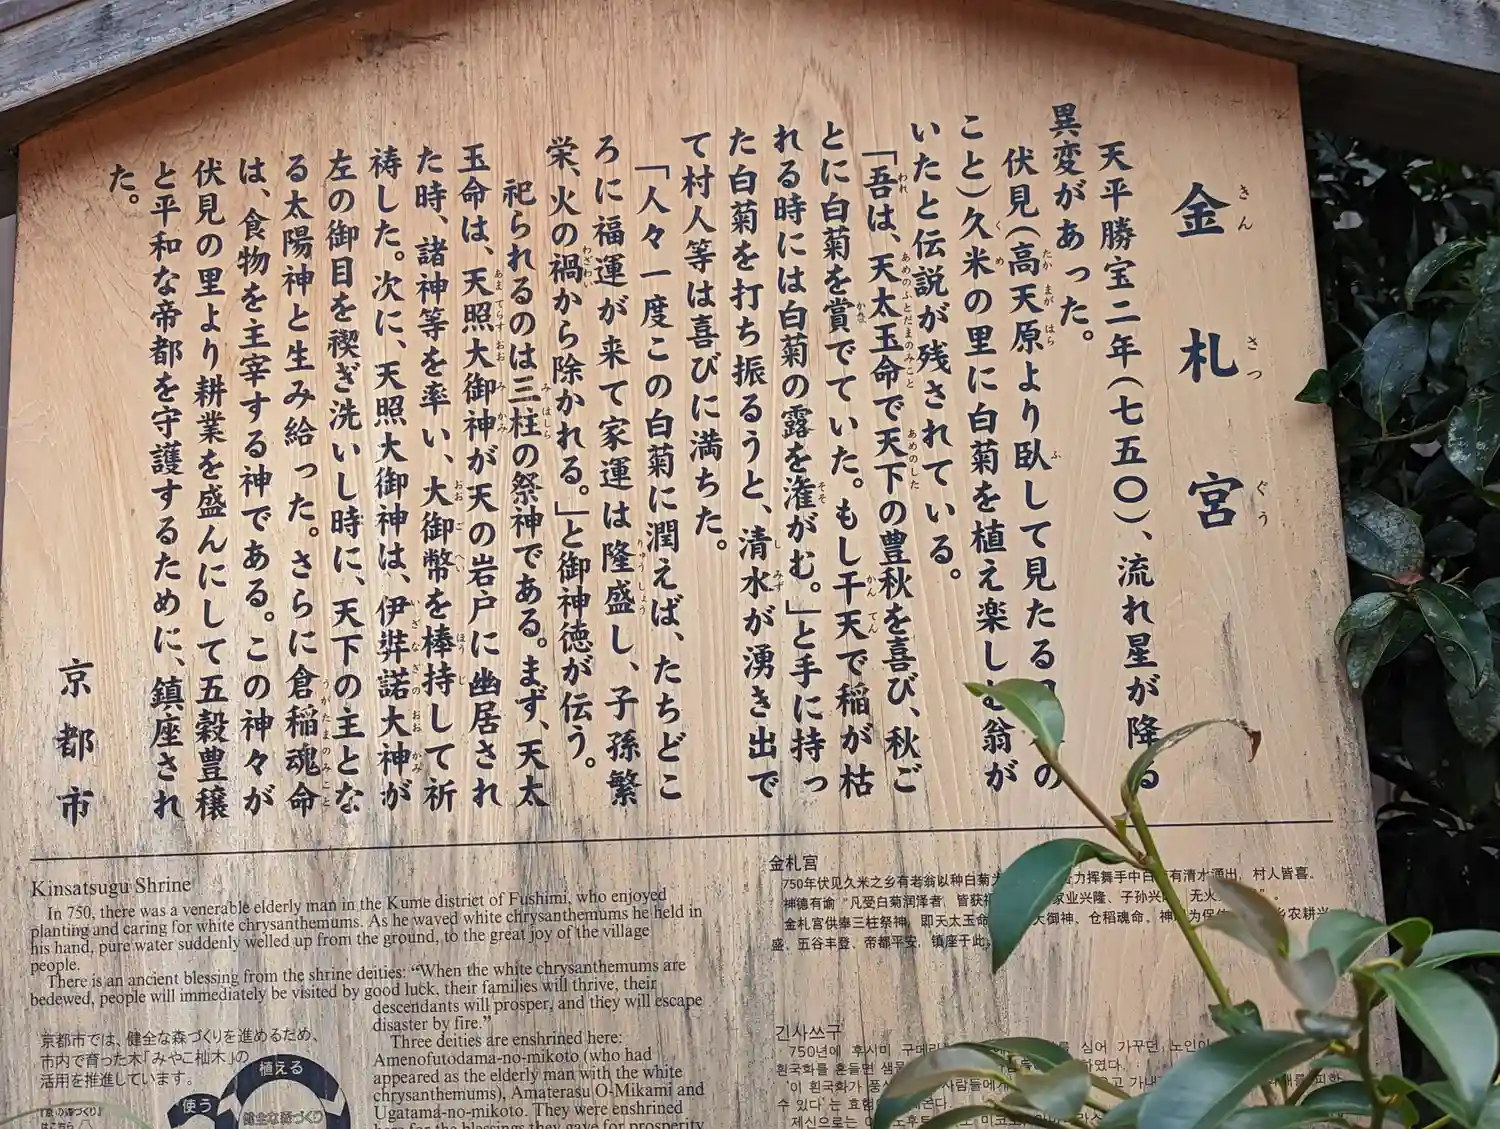 金札宮
きんさつぐう
天平勝宝二年(七五〇)、流れ星が降る
異変があった。
伏見(高天原より臥して見たる の
こと)久米の里に白菊を植え楽しむ翁が
いたと伝説が残されている。
「吾は、天太玉命で天下の豊秋を喜び、秋ご
とに白菊を賞でていた。もし干天で稲が枯
れる時には白菊の露を潅がむ。」と手に持っ
た白菊を打ち振るうと、清水が湧き出で
て村人等は喜びに満ちた。
「人々一度この白菊に潤えば、たちどこ
ろに福運が来て家運は隆盛し、子孫繁
栄、火の禍から除かれる。」と御神徳が伝う。
祀られるのは三柱の祭神である。まず、天太
玉命は、天照大御神が天の岩戸に幽居され
た時、諸神等を率い、大御幣を棒持して祈
祷した。次に、天照大御神は、伊弉諾大神が
左の御目を禊ぎ洗いし時に、天下の主とな
る太陽神と生み給った。さらに倉稲魂命
は、食物を主宰する神である。この神々が
伏見の里より耕業を盛んにして五穀豊穣
と平和な帝都を守護するために、鎮座され
た。
京都市
Kinsatsugu Shrine
In 750, there was a venerable elderly man in the Kume district of Fushimi, who enjoyed
planting and caring for white chrysanthemums. As he waved white chrysanthemums he held in
his hand, pure water suddenly welled up from the ground, to the great joy of the village
people.
There is an ancient blessing from the shrine deities: “When the white chrysanthemums are
bedewed, people will immediately be visited by good luck, their families will thrive, their
descendants will prosper, and they will escape
disaster by fire.”
Three deities are enshrined here:
Amenofutodama-no-mikoto (who had
appeared as the elderly man with the white
chrysanthemums), Amaterasu O-Mikami and
Ugatama-no-mikoto. They were enshrined
here for the blessings they gave for prosperity
京都市では、健全な森づくりを進めるため、
市内で育った木「みやこ杣木」の
活用を推進しています。
植える
使う
健全な森づくり
金札宫
750年伏见久米之乡有老翁以种白菊为 力挥舞手中白 有清水涌出，村人皆喜。
神德有谕“凡受白菊润泽者，皆获 家业兴隆、子孙兴 无火 ”。
金札宫供奉三柱祭神，即天太玉命 大御神、仓稻魂命。神 为保佑 乡农耕兴
盛、五谷丰登、帝都平安，镇座于此。
긴사쓰구
750년에 후시미 구메리 심어 가꾸던, 노인이
흰국화를 흔들면 샘물
'이 흰국화가 풍 사람들에게
수 있다'는 효험
제신으로는